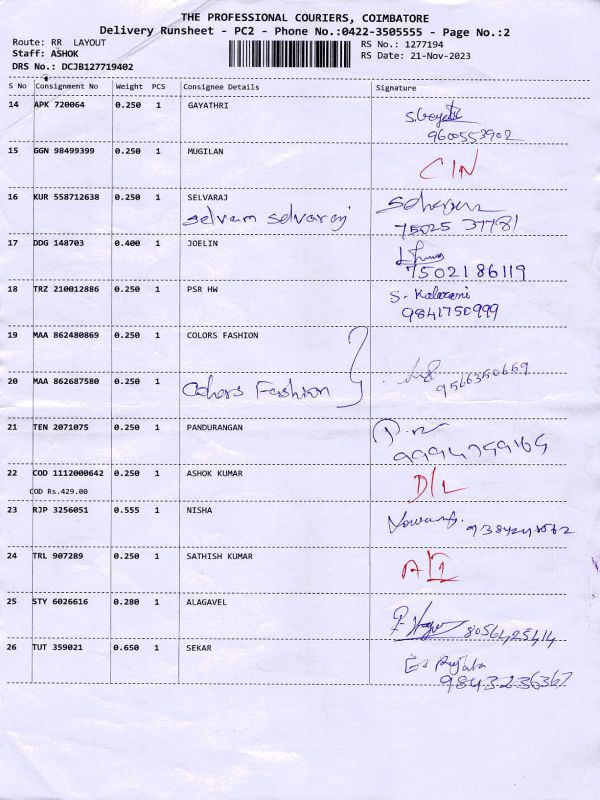 THE PROFESSIONAL COURIERS, COIMBATORE
Delivery Runsheet - PC2 - Phone No.:0422-3505555 - Page No.:2
Route: RR LAYOUT
Staff: ASHOK
DRS No.: DCJB127719402
RS No.: 1277194
RS Date: 21-Nov-2023
S No Consignment No Weight PCS Consignee Details Signature
14 APK 720064 0.250 1 GAYATHRI
9600553902
15 GGN 98499399 0.250 1 MUGILAN CIN
16 KUR 558712638 0.250 1 SELVARAJ
selvam selvaraj 75025 37781
17 DDG 148703 0.400 1 JOELIN
7502186119
18 TRZ 210012886 0.250 1 PSR HW S. Kalarani
9841750999
19 MAA 862480869 0.250 1 COLORS FASHION
20 MAA 862687580 0.250 1 Colors Fashion 9566350669
21 TEN 2071075 0.250 1 PANDURANGAN
9994759165
22 COD 1112000642 0.250 1 ASHOK KUMAR D/L
COD Rs.429.00
23 RJP 3256051 0.555 1 NISHA
24 TRL 907289 0.250 1 SATHISH KUMAR
25 STY 6026616 0.280 1 ALAGAVEL
8056425414
26 TUT 359021 0.650 1 SEKAR
9843236367